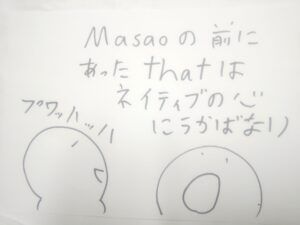 Masaoの前に
あったthatは
ネイティブの心
にうかばない
ブワッハッハ